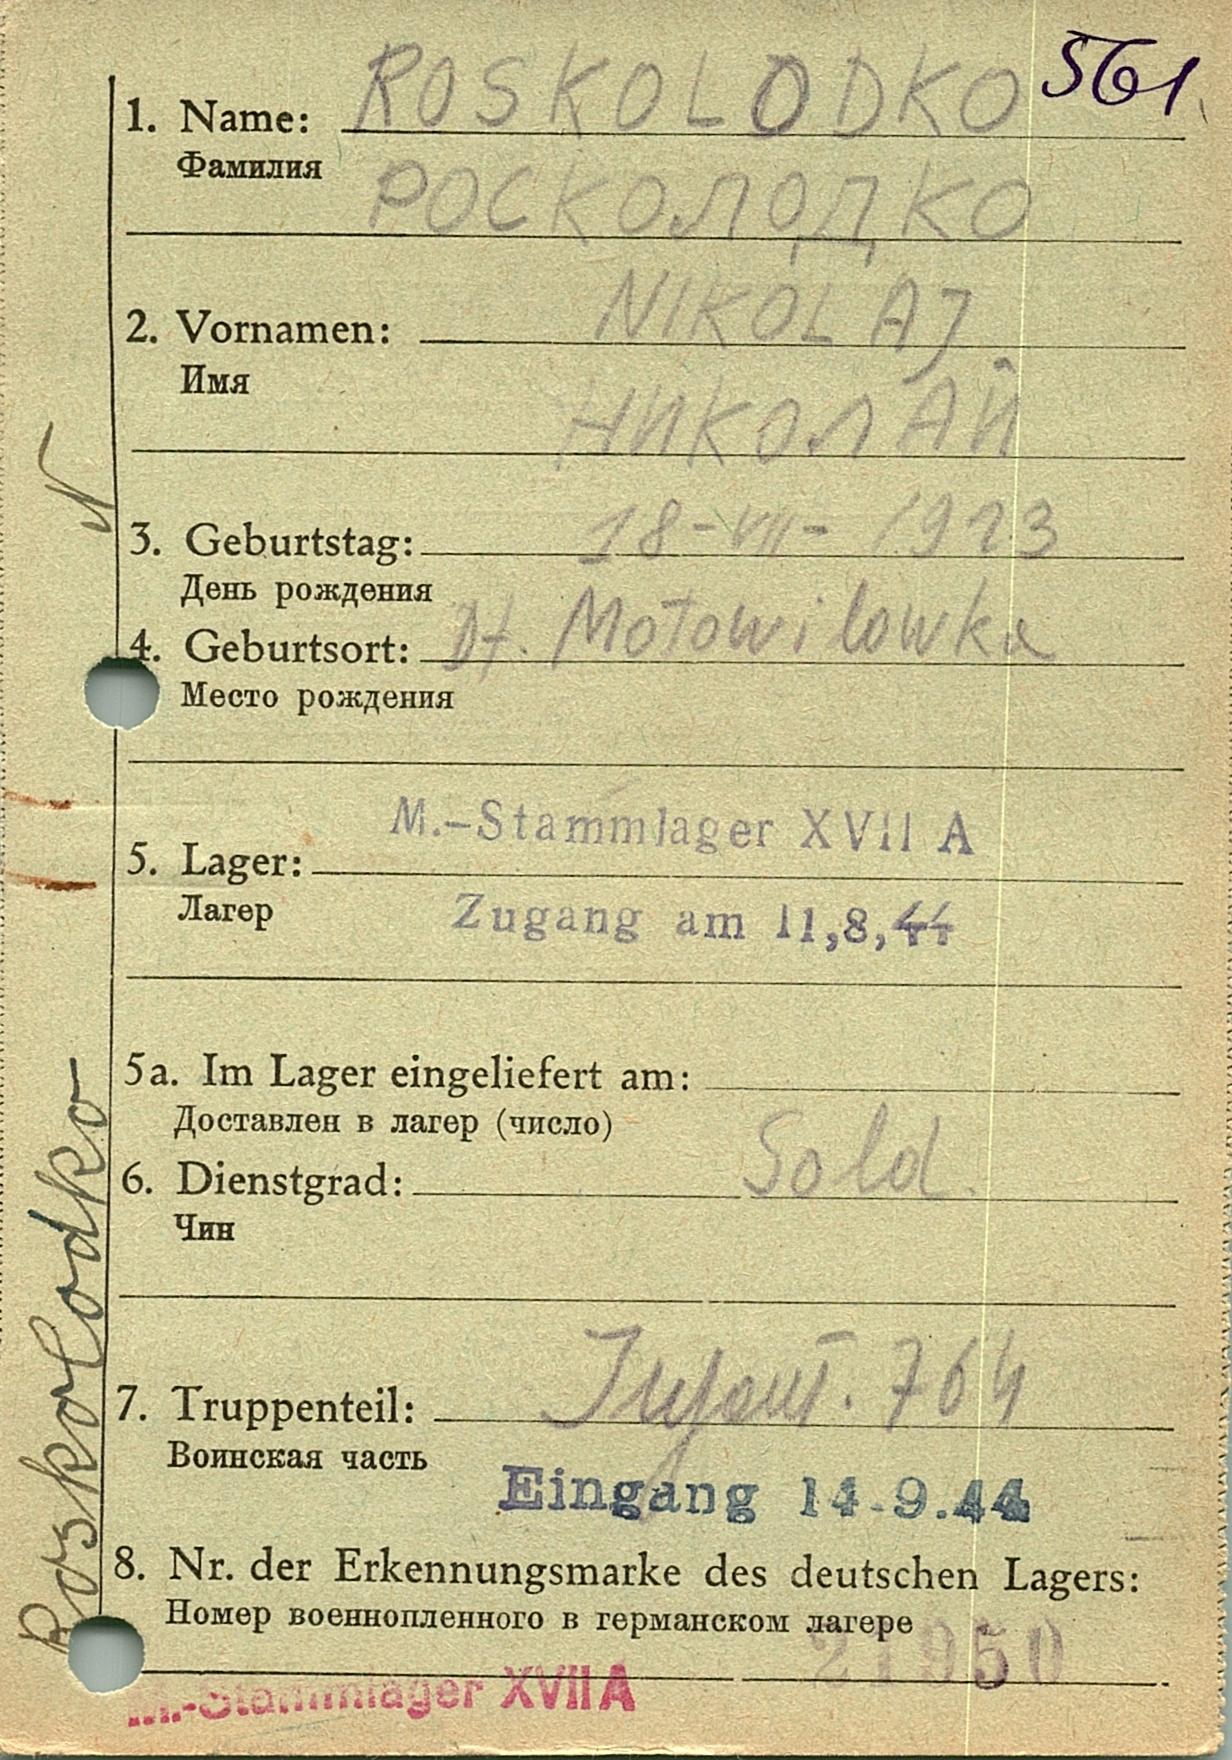 561
1. Name: ROSKOLODKO
Фамилия
РОСКОЛОДКО
2. Vornamen: NIKOLAJ
Имя
НИКОЛАЙ
3. Geburtstag: 18-VII-1923
День рождения
4. Geburtsort: Motowilowka
Место рождения
M.-Stammlager XVII A
5. Lager:
Лагер
Zugang am 11,8,44
5a. Im Lager eingeliefert am:
Доставлен в лагер (число)
6. Dienstgrad: Sold.
Чин
7. Truppenteil: 764
Воинская часть
Eingang 14.9.44
8. Nr. der Erkennungsmarke des deutschen Lagers:
Номер военнопленного в германском лагере
21950
M.-Stammlager XVII A
Roskolodko